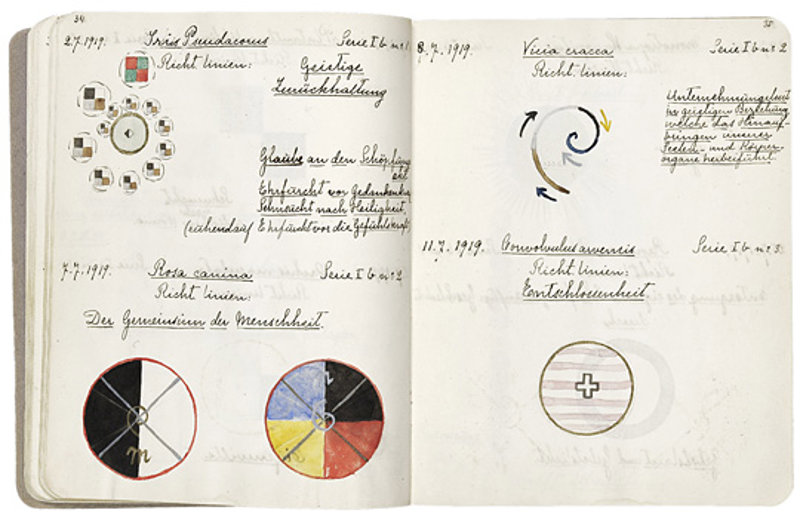 34.
2.7.1919. Iris Pseudacorus Serie I b n:o 1
Richt linien:
Geistige
Zurückhaltung
Glaube an den Schöpfung
Ehrfurcht vor Gedankenkr
Sehnsucht nach Heiligkeit
(ruhend auf Ehrfurcht vor die Gefühlskraft
7.7.1919. Rosa canina Serie I b n:o 2
Richt linien:
Der Gemeinsinn der Menschheit.
35
8.7.1919. Vicia cracca Serie I b n:o 2
Richt linien:
Unternehmungslust
in geistigen Beziehung
welche das Hinauf-
bringen unserer
Seelen- und Körper-
organe herbeiführt.
11.7.1919. Convolvulus arvensis Serie I b n:o 3
Richt linien:
Entschlossenheit